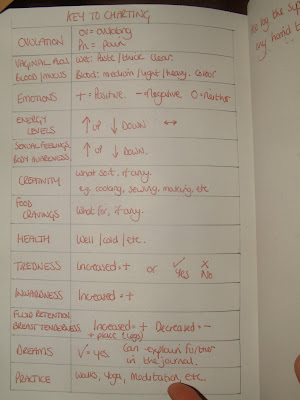 KEY TO CHARTING
OVULATION
OV = Ovulating
Pn = Pain
VAGINAL FLUID
BLOOD/MUCUS
Wet: Paste/thick Clear.
Blood: medium/light/heavy. Colour
EMOTIONS
+ = Positive - = Negative 0 = Neither
ENERGY
LEVELS
↑ UP ↓ DOWN ↔
SEXUAL FEELINGS,
BODY AWARENESS
↑ UP ↓ DOWN.
CREATIVITY
What sort, if any.
e.g. cooking, sewing, making, etc
FOOD
CRAVINGS
What for, if any.
HEALTH
Well / cold / etc.
TIREDNESS
Increased = + or ✓ Yes ✗ No
INWARDNESS
Increased = +
FLUID RETENTION
BREAST TENDERNESS
Increased = + Decreased = -
+ place (legs)
DREAMS
✓ = yes Can explain further
in the journal.
PRACTICE
Walks, Yoga, Meditation, etc.
by the